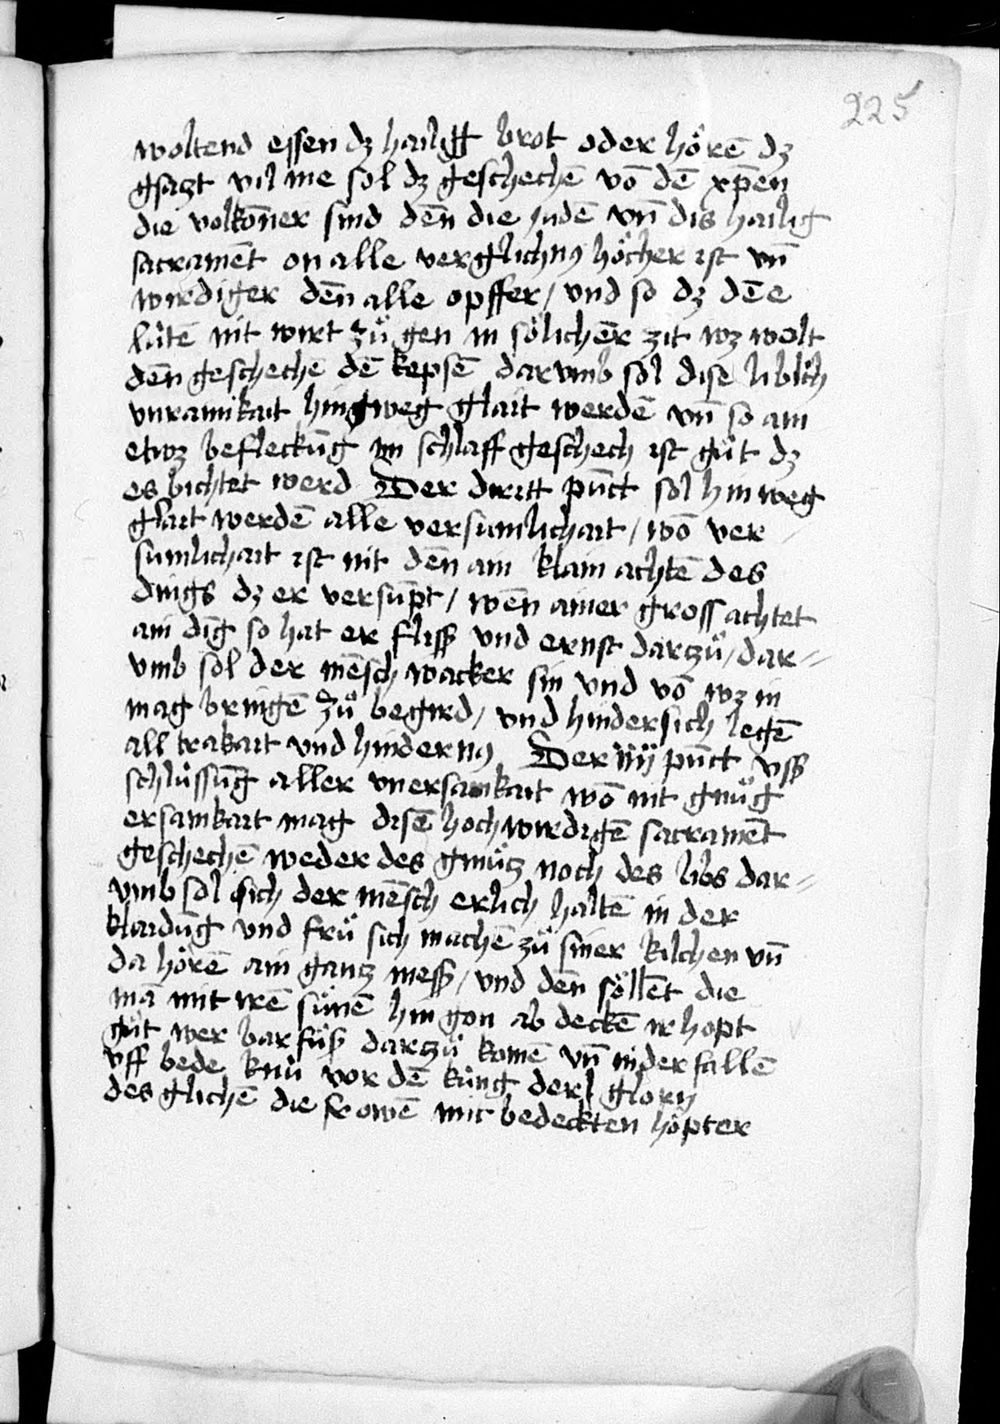 225
woltend essen dz hailigt brot oder hoͤrē dz
gsatzt vil me sol dz geschechē vō dē xp̄en
die volkōner sind dēn die iudē vn̄ dis hailig
sacramēt on alle verglichnꝰ hoͤcher ist vn̄
wirdiger dēn alle opffer / vnd so dz dēe
luͤtē nit wirt zuͦ gen in soͤlichēr zit wz wolt
dēn geschechē dē kepsē darumb sol dise liblich
vnrainikait hingweg glait werdē vn̄ so ain
etwz befleckūg im schlaff geschech ist guͦt dz
es bichtet werd Der dritt pūct sol hinweg
glait werdē alle versumlichait / wō ver
sumlichait ist nit dēn ain klain achtē des
dings dz er versūpt / wēn ainer gross achtet
ain dīg so hat er fliß vnd ernst darzuͦ / dar=
vmb sol der mēsch wacker sin vnd vō wz in
mag bringē zuͦ begird / vnd hindersich legē
all trakait vnd hindernꝰ Der iiij pūct vß
schluͤssūg aller vnersamkait wō nit gnuͦg
ersamkait mag disē hochwirdigē sacramēt
geschechē weder des gmuͤtz noch des libs dar=
vmb sol sich der mēsch erlich haltē in der
klaidūg vnd fruͤ sich machē zuͦ siner kilchen vn̄
da hoͤrē ain gantz meß / vnd dēn soͤllēt die
mā mit irē suͤnē hin gon ab deckē ir hopt
guͦt wer barfuͦß darzuͦ komē vn̄ niderfallē
vff bede knuͤ vor dē kuͤng der glory
des glichē die frowē mit bedeckten hoͤpter